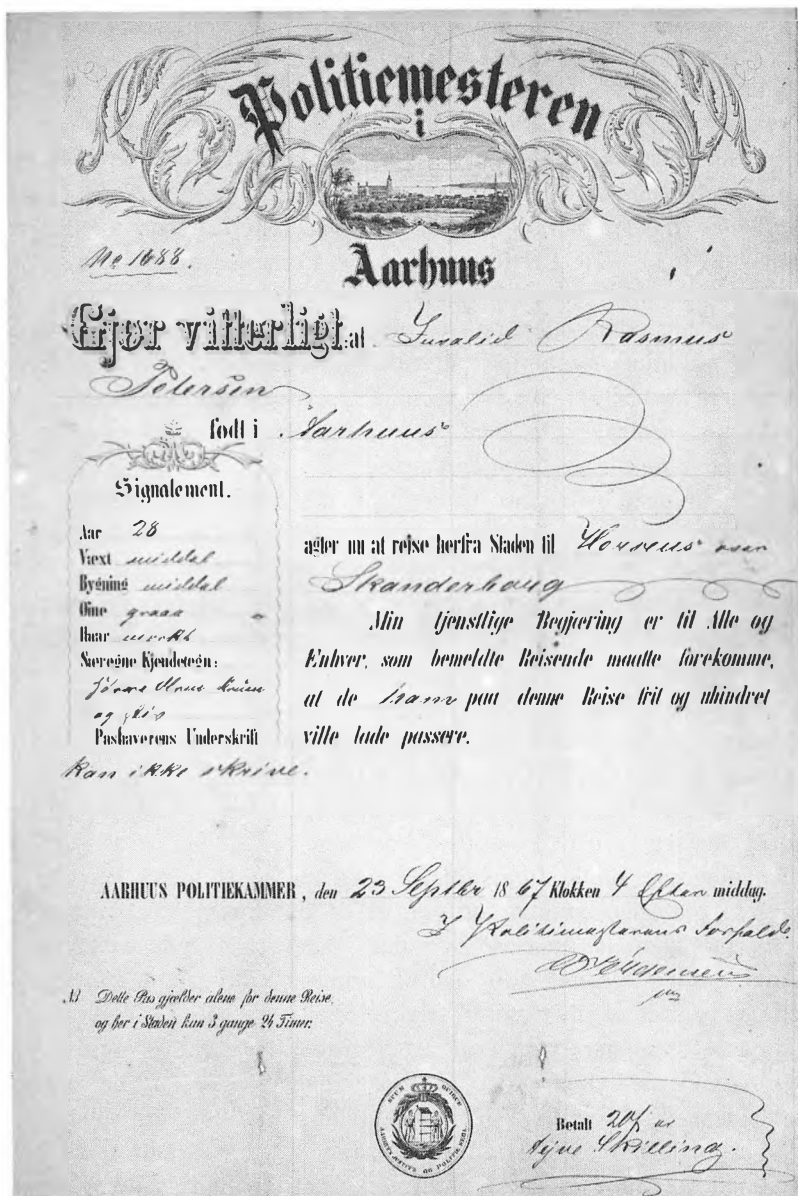 Politiemesteren
i
Aarhuus
No 1688.
Gjør vitterligt: at Invalid Rasmus
Petersen
født i Aarhuus
Signalement.
Aar 28
Væxt middel
Bygning middel
Øine graaa
Haar mørkt
Særegne Kjendetegn:
og stiv
Pashaverens Underskrift
kan ikke skrive.
agter nu at reise herfra Staden til Horsens over
Skanderborg
Min tjenstlige Begjæring er til Alle og
Enhver, som bemeldte Reisende maatte forekomme,
at de ham paa denne Reise frit og uhindret
ville lade passere.
AARHUUS POLITIEKAMMER, den 23 Septbr 1867 Klokken 4 Efter middag.
I Politimesterens Forfald.
NB Dette Pas gjælder alene for denne Reise,
og her i Staden kun 3 gange 24 Timer.
Betalt 20
tyve Skilling.